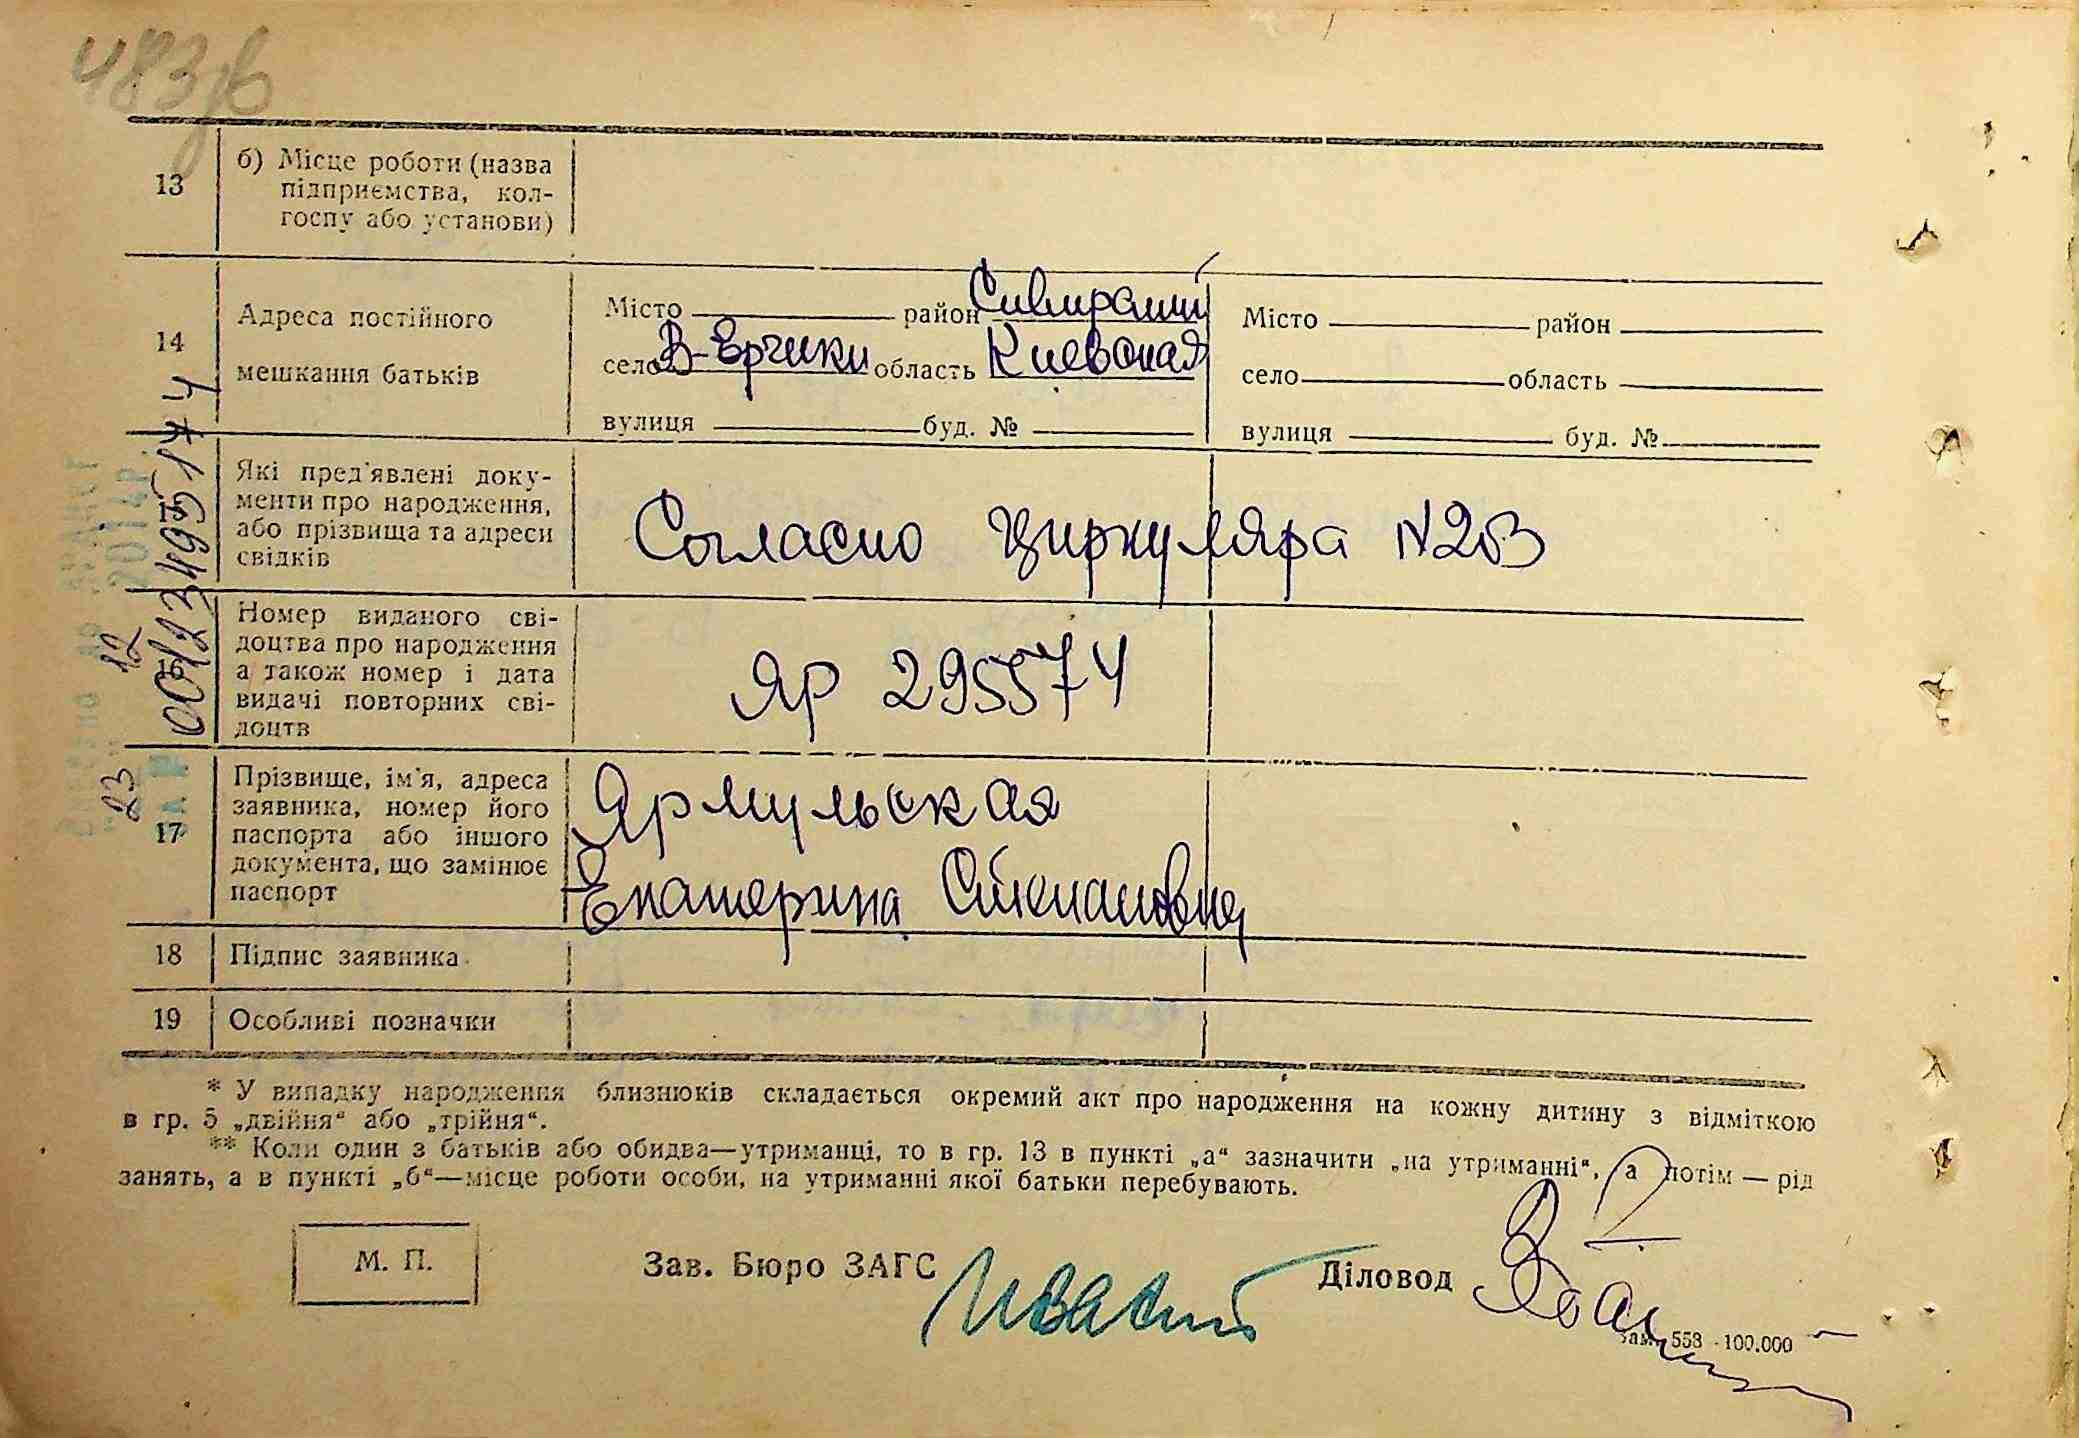 483зв
13 б) Місце роботи (назва
підприємства, кол-
госпу або установи)
14 Адреса постійного
мешкання батьків
Місто район Сквирский
село В-Ерчики область Киевская
вулиця буд. №
Місто район
село область
вулиця буд. №
15 Які пред'явлені доку-
менти про народження,
або прізвища та адреси
свідків
Согласно циркуляра N 203
16 Номер виданого сві-
доцтва про народження
а також номер і дата
видачі повторних сві-
доцтв
ЯР 295574
17 Прізвище, ім'я, адреса
заявника, номер його
паспорта або іншого
документа, що замінює
паспорт
Ярмульская
Екатерина Степановна
18 Підпис заявника
19 Особливі позначки
23 12
00123495174
* У випадку народження близнюків складається окремий акт про народження на кожну дитину з відміткою
в гр. 5 „двійня“ або „трійня“.
** Коли один з батьків або обидва—утриманці, то в гр. 13 в пункті „а“ зазначити „на утриманні“, а потім — рід
занять, а в пункті „б“—місце роботи особи, на утриманні якої батьки перебувають.
М. П.
Зав. Бюро ЗАГС
Діловод
Зам. 553 - 100.000